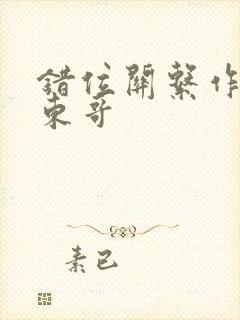 错位關繫作
東哥
素已